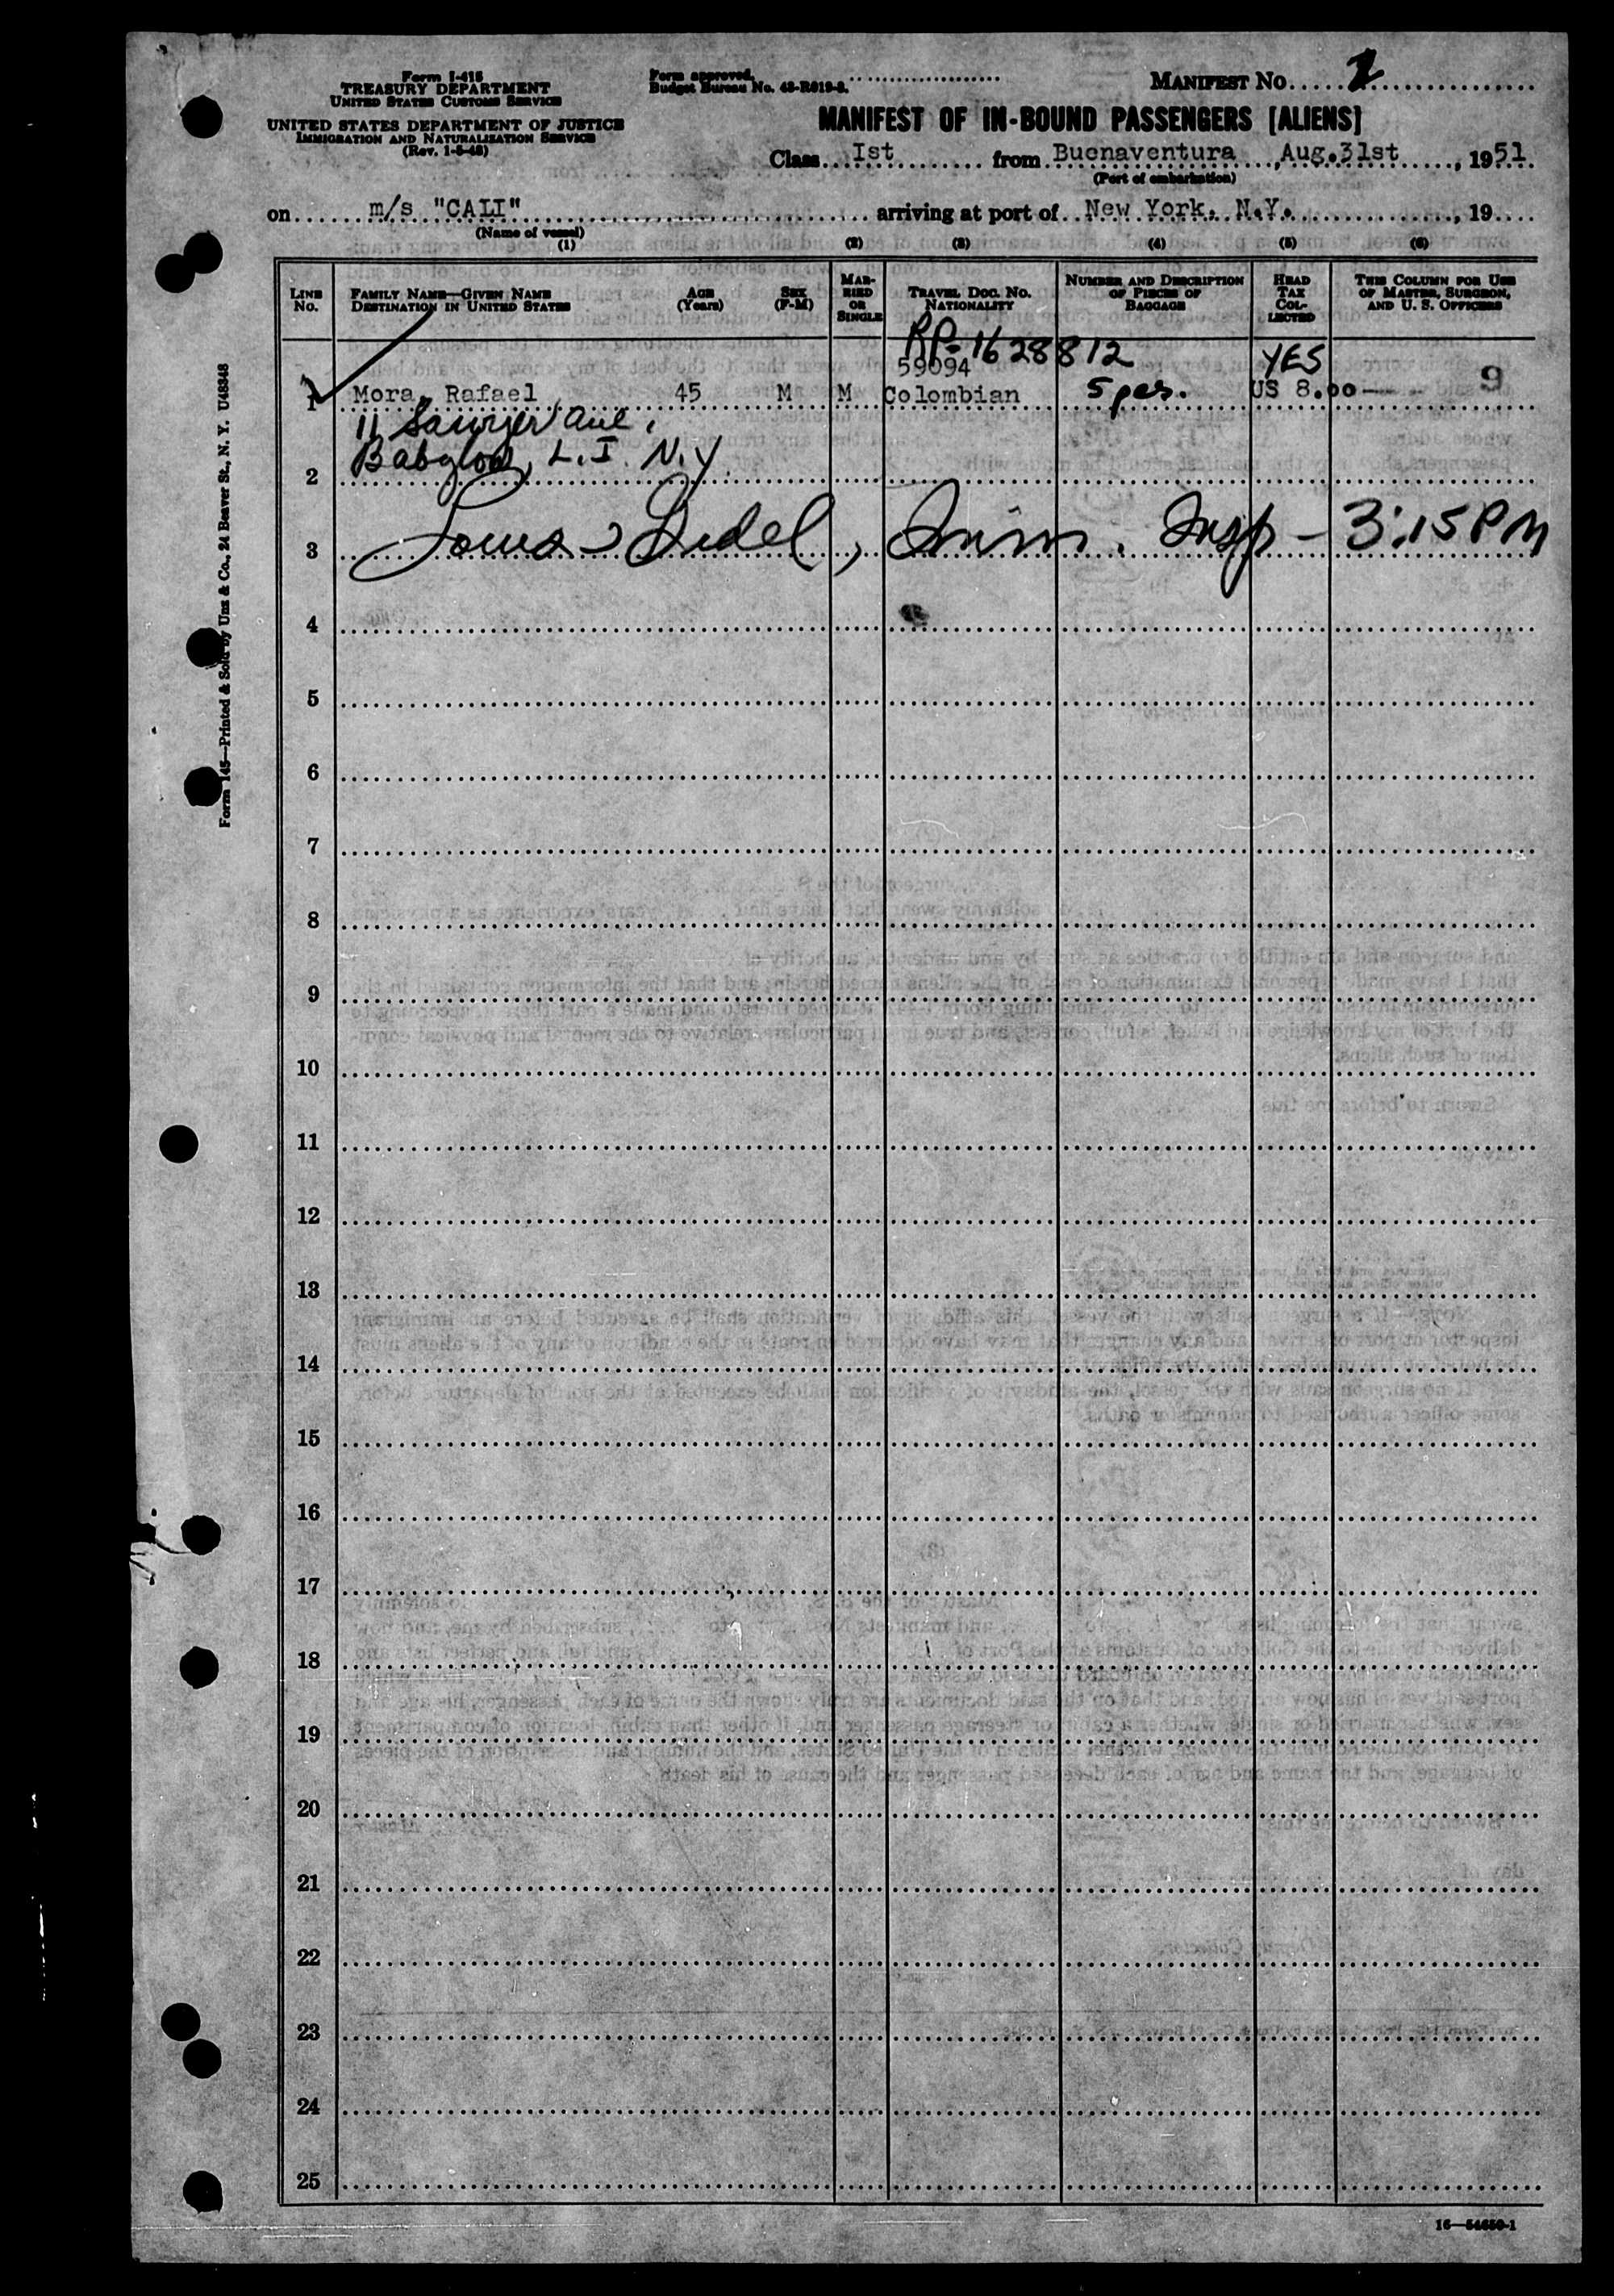 Form I-415
TREASURY DEPARTMENT
UNITED STATES CUSTOMS SERVICE
UNITED STATES DEPARTMENT OF JUSTICE
IMMIGRATION AND NATURALIZATION SERVICE
(Rev. 1-5-48)
Form approved.
Budget Bureau No. 43-R019-3.
MANIFEST NO. 2
MANIFEST OF IN-BOUND PASSENGERS (ALIENS)
Class Ist from Buenaventura, Aug.31st, 1951
(Port of embarkation)
on m/s "CALI" arriving at port of New York. N.Y., 19
(Name of vessel)
(1) (2) (3) (4) (5) (6)
LINE NO. FAMILY NAME—GIVEN NAME DESTINATION IN UNITED STATES AGE (Years) SEX (F-M) MARRIED OR SINGLE TRAVEL DOC. NO. NATIONALITY NUMBER AND DESCRIPTION OF PIECES OF BAGGAGE HEAD TAX COLLECTED THIS COLUMN FOR USE OF MASTER, SURGEON, AND U. S. OFFICERS
RP-1628812
59094 YES
1 Mora, Rafael 45 M M Colombian 5 pcs. US 8.00 — 9
11 Sawyer Ave,
2 Babylon, L.I. N.Y.
3 Imm. Insp - 3:15 PM
4
5
6
7
8
9
10
11
12
13
14
15
16
17
18
19
20
21
22
23
24
25
Form 145—Printed & Sold by Unz & Co., 24 Beaver St., N. Y. U48348
16—54650-1